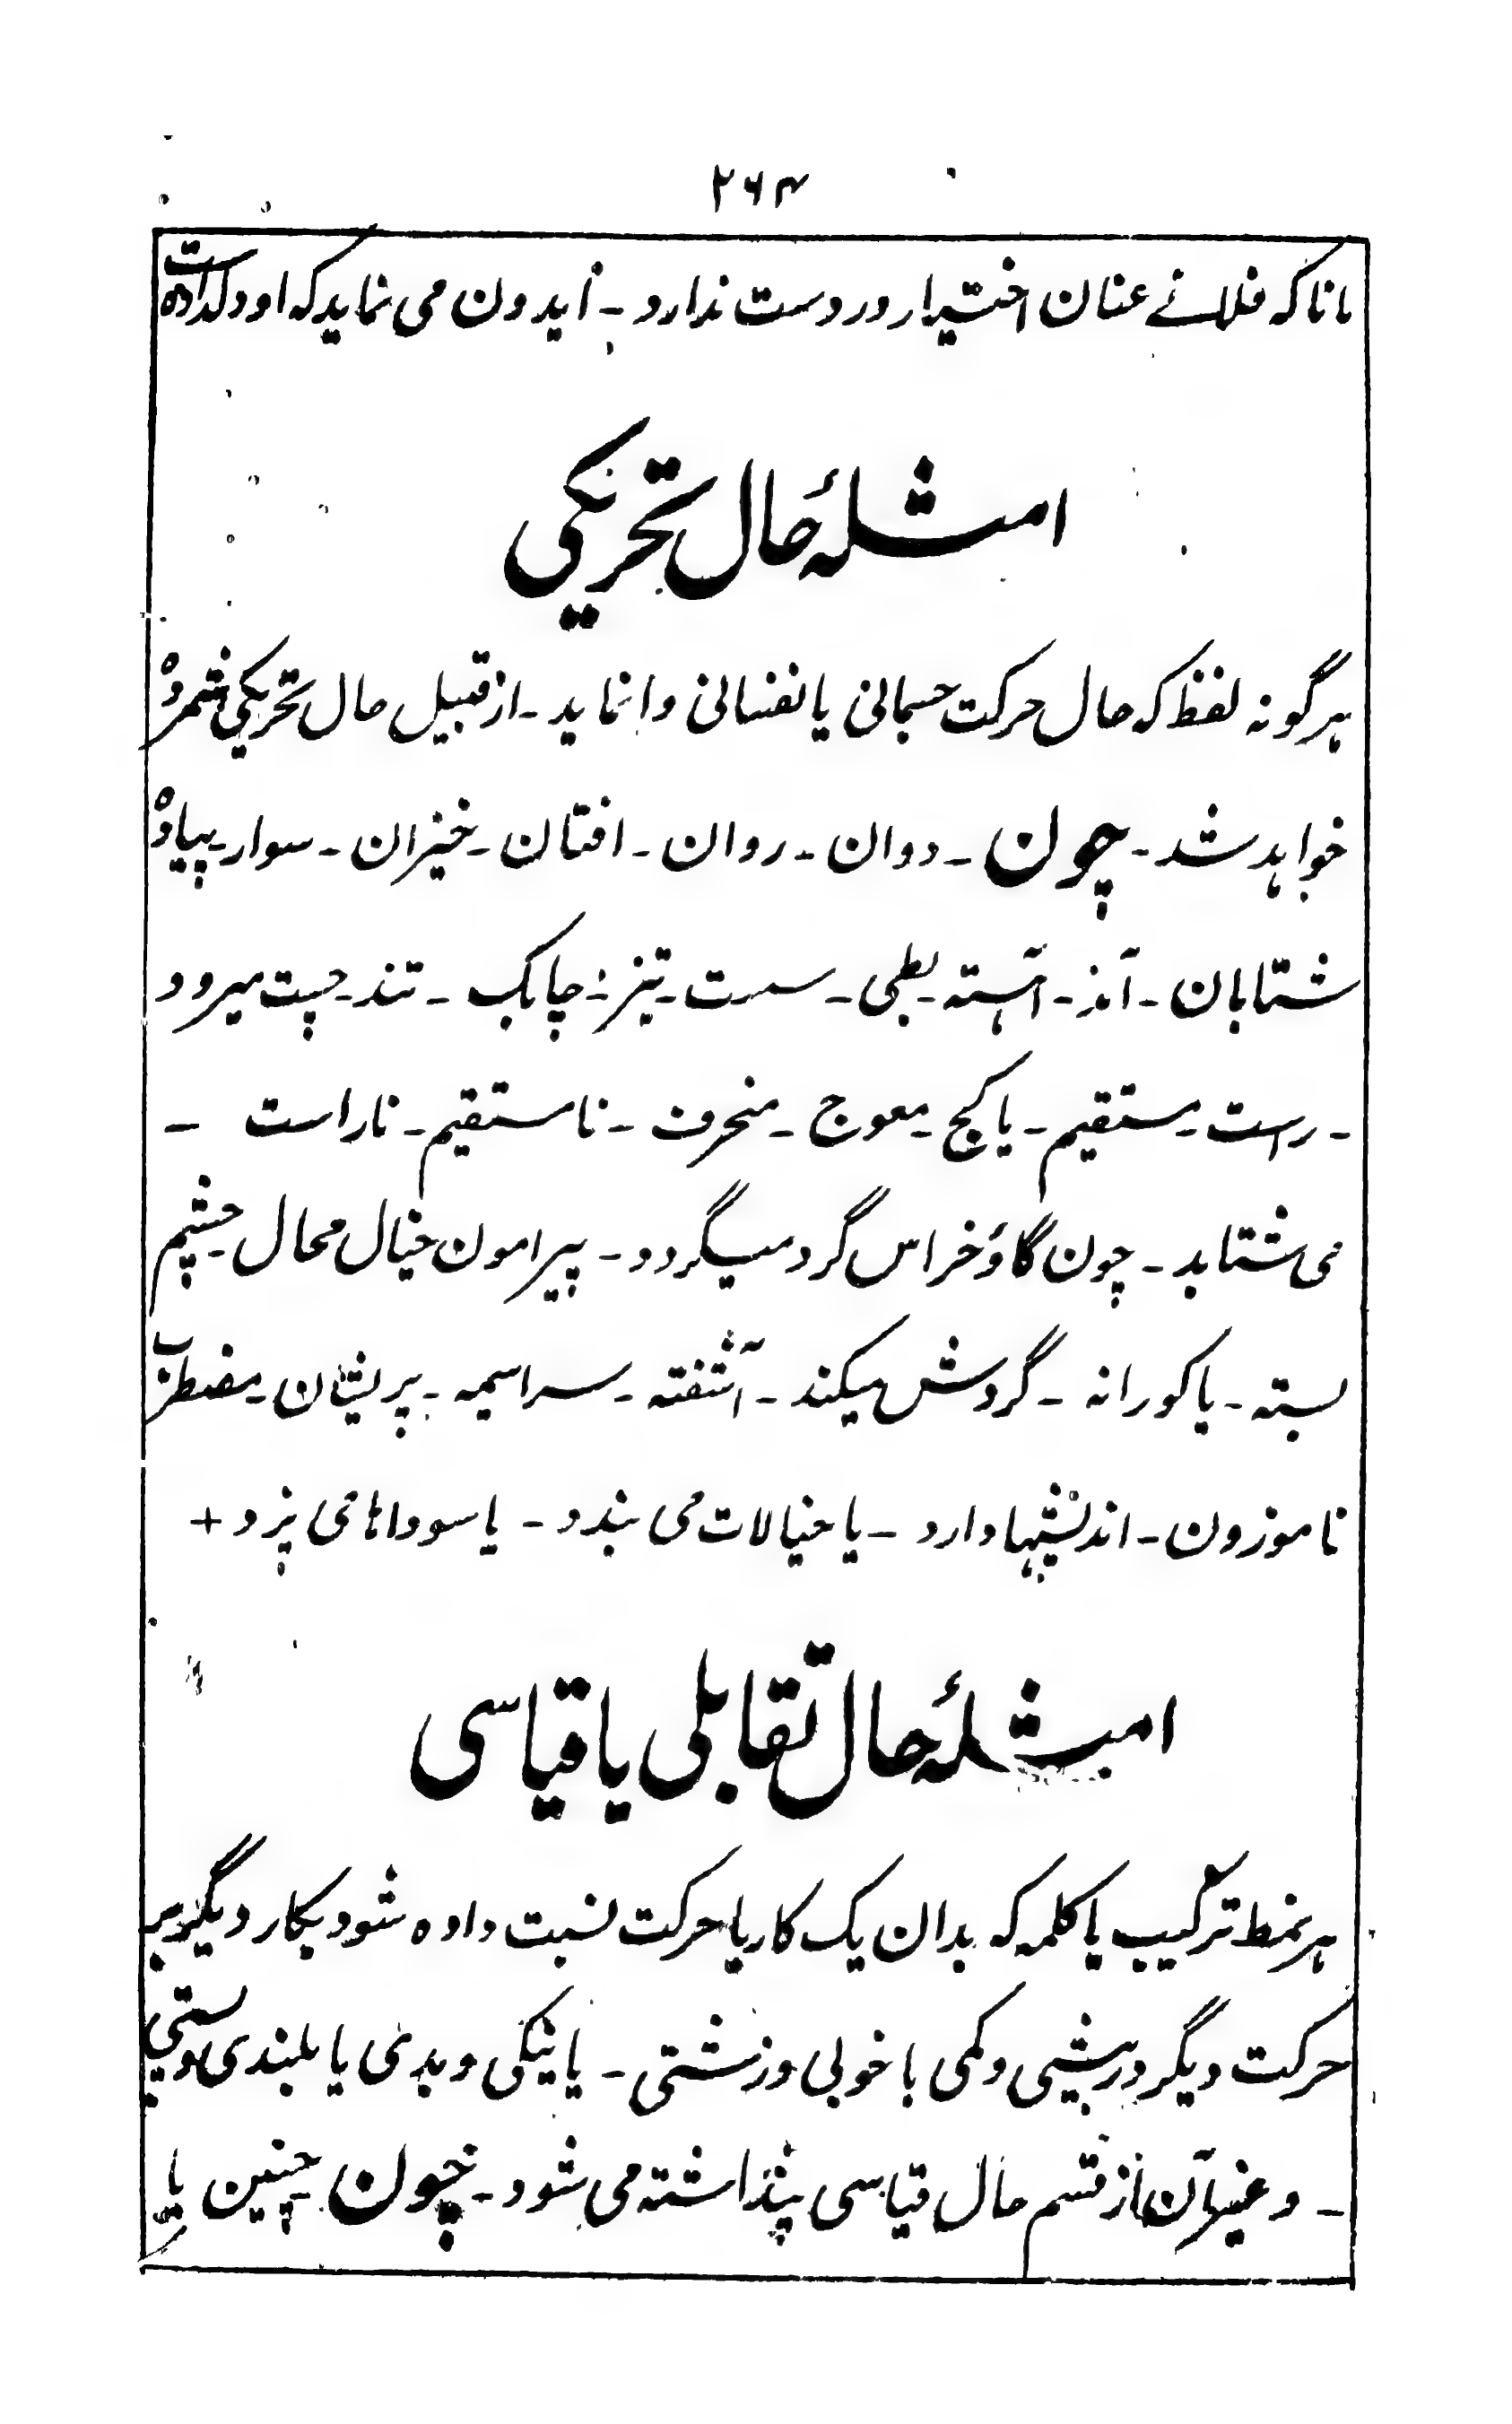 ۲۶۴
مانا که فلانے عنان اختیار در دست ندارد ـ ایدون می نماید که او دلداده است
امثلهٔ حال تحریکی
هرگونه لفظ که حال حرکت جسمانی یا نفسانی وا نماید ـ از قبیل حال تحریکی شمرده
خواهد شد ـ چون ـ دوان ـ روان ـ افتان ـ خیزان ـ سوار ـ پیاده
شتابان ـ آهسته ـ بطی ـ سست ـ تیز ـ چابک ـ تند ـ چست میرود
ـ راست ـ مستقیم ـ یا کج ـ معوج ـ منحرف ـ نامستقیم ـ ناراست ـ
می شتابد ـ چون گاؤ خراس گرد میگردد ـ پیرامون خیال محال ـ چشم
بسته ـ یا کورانه ـ گردش میکند ـ آشفته ـ سراسیمه ـ پریشان ـ مضطرب
ناموزون ـ اندیشها دارد ـ یا خیالات می بندد ـ یا سوداها می پزد +
امثلهٔ حال تقابلی یا قیاسی
هر نمط ترکیب یا کلمه که بدان یک کار یا حرکت نسبت داده شود بکار دیگر یا
حرکت دیگر در بیشی و کمی یا خوبی و زشتی ـ یا نیکی و بدی یا بلندی و پستی
ـ و غیر آن از قسم حال قیاسی پنداشته می شود ـ چون چنین یا